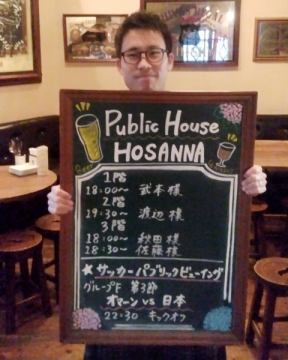 Public House
HOSANNA
1階
18:00〜 武本様
2階
19:30〜 渡辺様
3階
18:00〜 秋田様
18:30〜 佐藤様
★サッカーパブリックビューイング
グループF 第3節
オマーン VS 日本
22:30 キックオフ